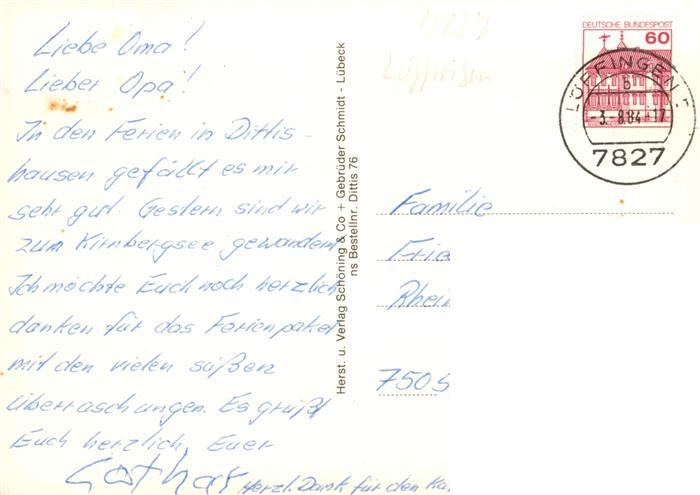 Liebe Oma!
Lieber Opa!
In den Ferien in Dittis-
hausen gefällt es mir
sehr gut. Gestern sind wir
zum Kirnbergsee gewandert
Ich möchte Euch noch herzlich
danken für das Ferienpaket
mit den vielen süßen
Überraschungen. Es grüßt
Euch herzlich, Euer
Lothar
Herzl. Dank für den Ka
Herst. u. Verlag Schöning & Co + Gebrüder Schmidt - Lübeck
ns Bestellnr. Dittis 76
7827
Löffingen
DEUTSCHE BUNDESPOST
60
LÖFFINGEN
b
-3.-8.84-17
7827
Familie
Frie
Rhei
7505